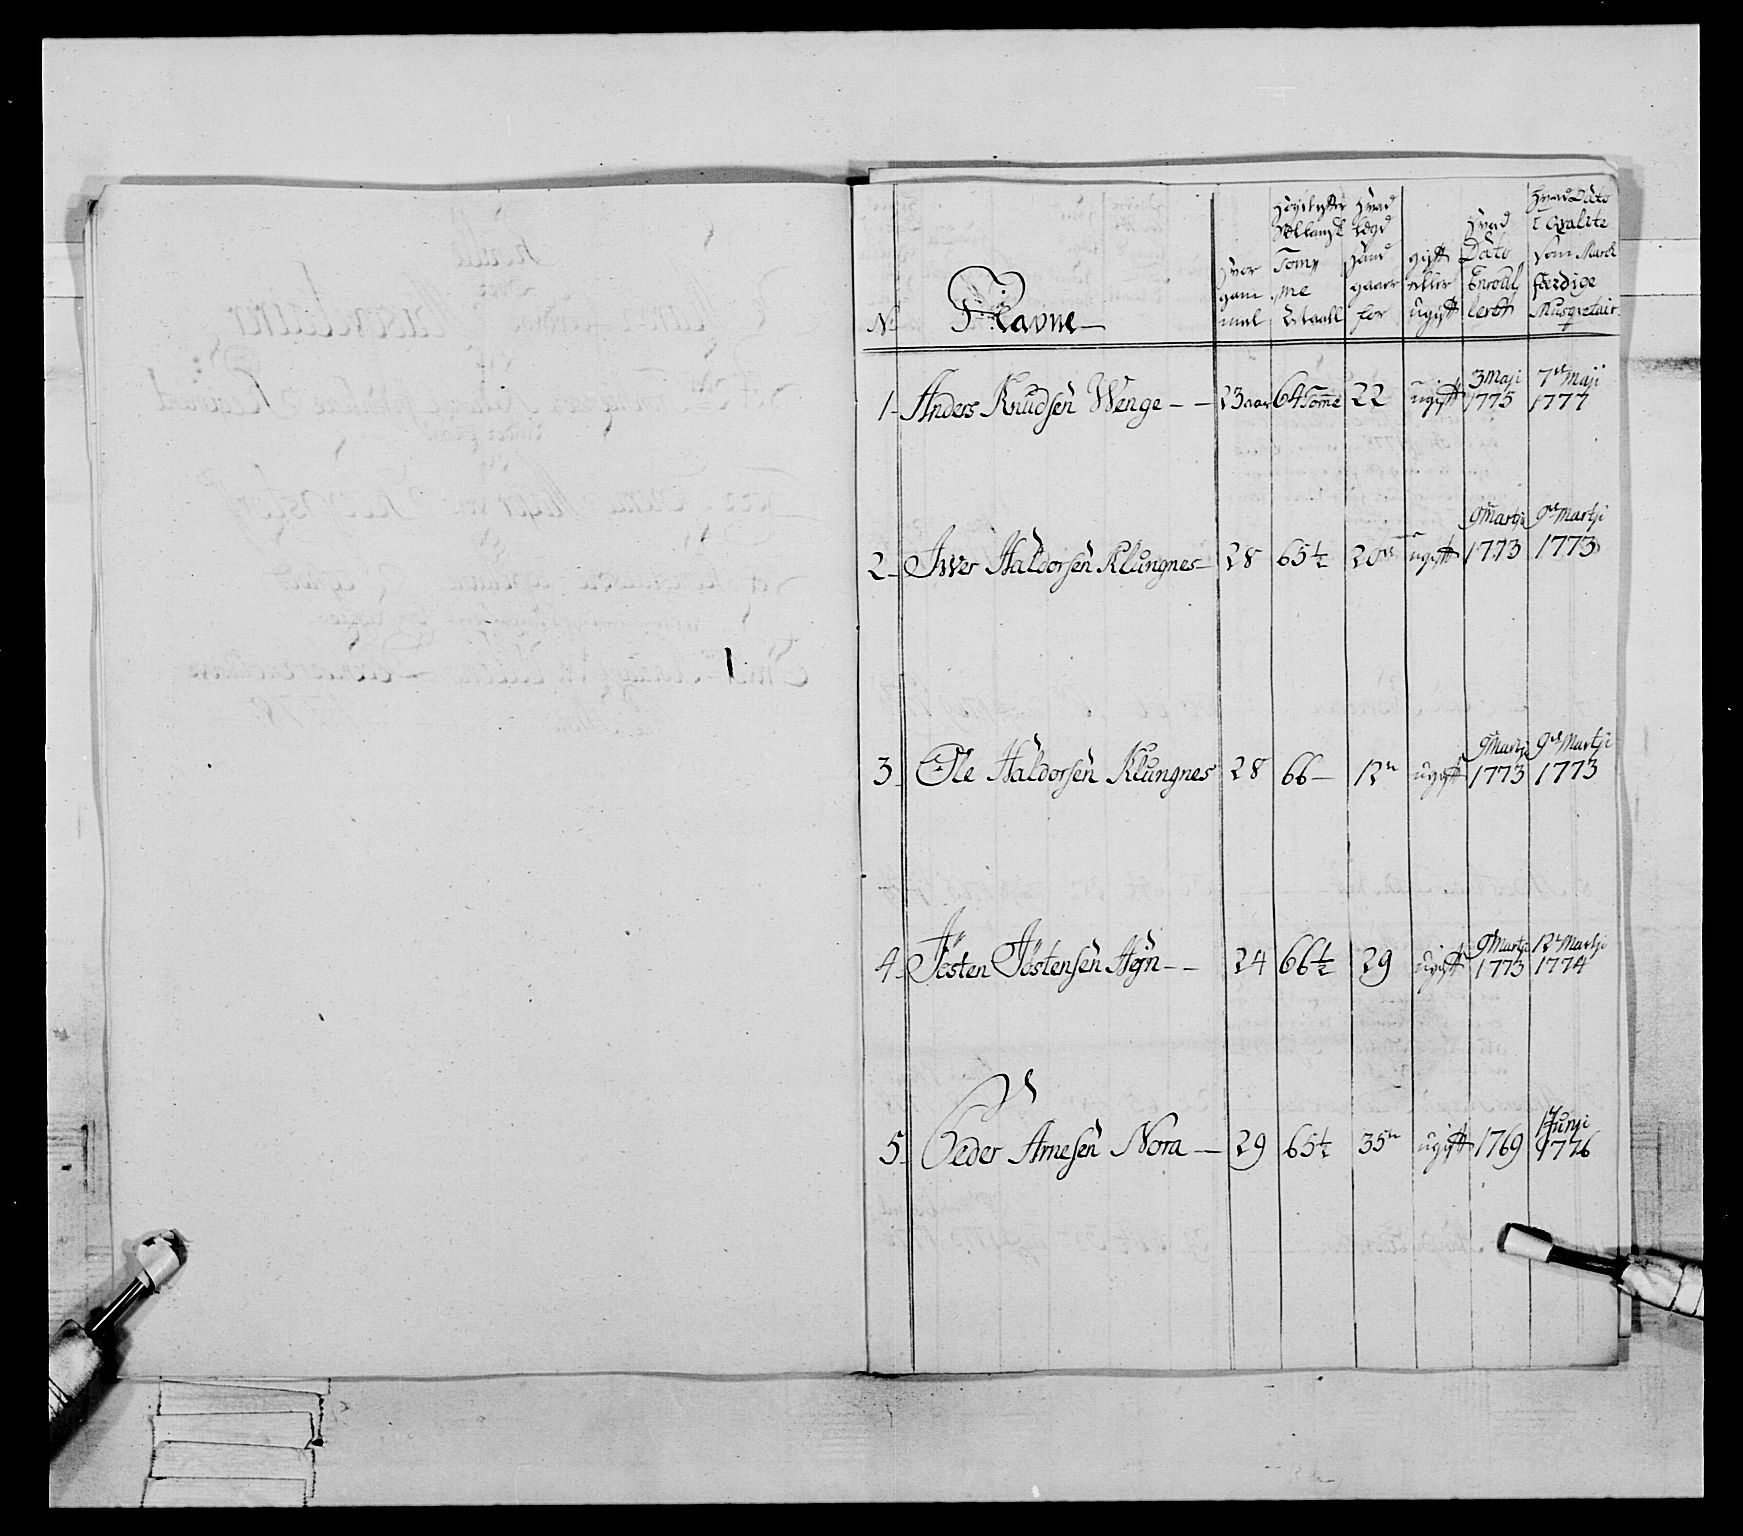 No
Navne
Hvor gam mal
Tomme Maall
Hvad Legd Hand gaaer for
gift eller ugift
Hvad Dato Enroullert
Hvad Dato i Qvalite som March færdige Musqvetair
1 Anders Knudsen Wenge - - 23 aar 64 Tomme 22 ugift 3 Maji 1775 7de Maji 1777
2 Iwer Haldorsen Klungnes 28 65 1/2 20 ugift 9 Martji 1773 9de Martji 1773
3 Ole Haldorsen Klungnes 28 66 12 ugift 9 Martji 1773 9de Martji 1773
4 Jösten Jöstensen - - 24 66 1/2 29 ugift 9 Martji 1773 12 Martji 1774
5 Peder Arnesen Nora 29 65 1/2 35 ugift 1769 Junji 1776